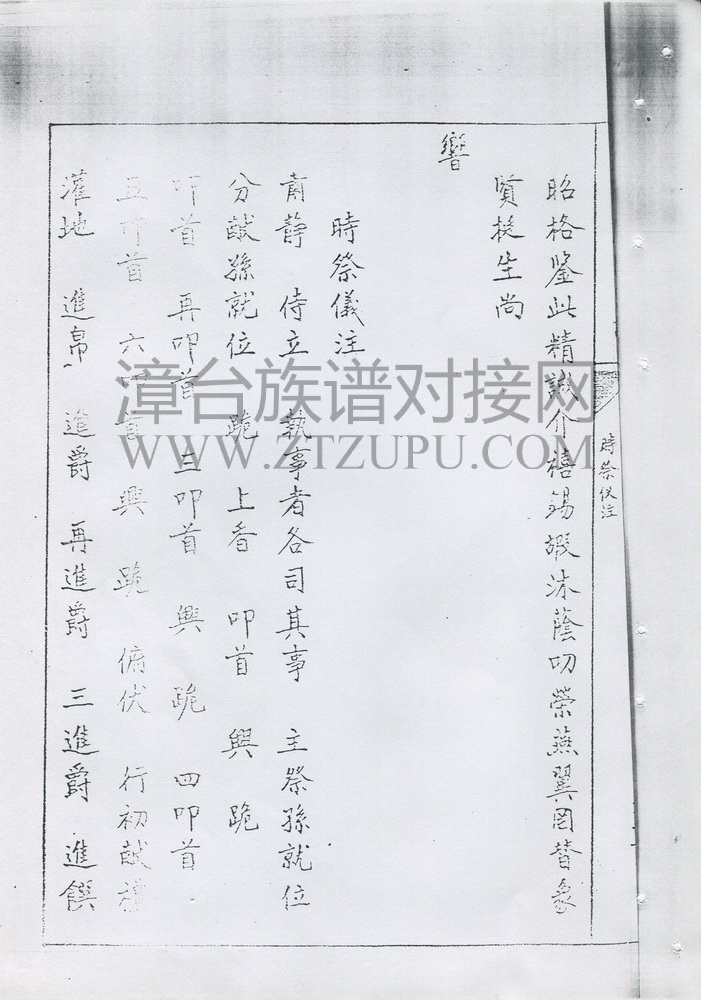 昭格鑒此精誠介禧錫嘏沐蔭叨榮燕翼罔替象
賢挺生尚
響
時祭儀注
肅静 侍立 執事者各司其事 主祭孫就位
分献孫就位 跪 上香 叩首 興 跪
叩首 再叩首 三叩首 興 跪 四叩首
五叩首 六叩首 興 跪 俯伏 行初献禮
灌地 進帛 進爵 再進爵 三進爵 進饌
時祭仪注
漳台族谱对接网
WWW.ZTZUPU.COM